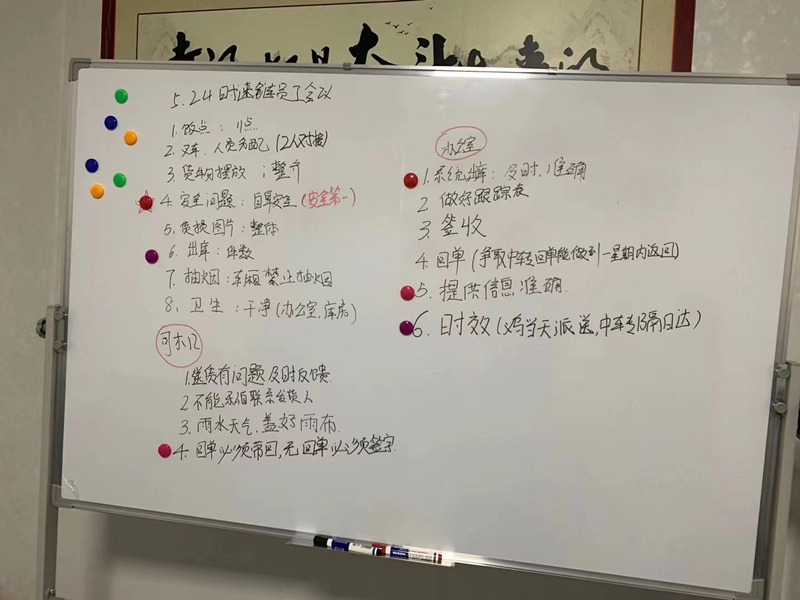 5.24 时速鲜生员工会议
1. 饭点：1点
2. 叉车、人员分配（2人对接）
3. 货物摆放：整齐
4. 安全问题：自身安全（安全第一）
5. 货损图片：整体
6. 出库：件数
7. 抽烟：车厢禁止抽烟
8. 卫生：干净（办公室、库房）
司机
1. 送货有问题及时反馈
2. 不能私自联系发货人
3. 雨水天气，盖好雨布
4. 回单必须带回，无回单必须签字
办公室
1. 系统出库：及时、准确
2. 做好跟踪表
3. 签收
4. 回单（争取中转回单能做到一星期内返回）
5. 提供信息准确
6. 时效（当天派送，中转隔日达）